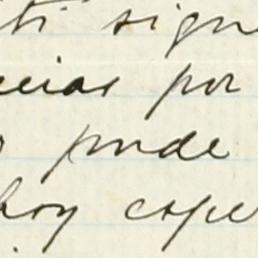 ti sign
cias por
pude
hoy espe